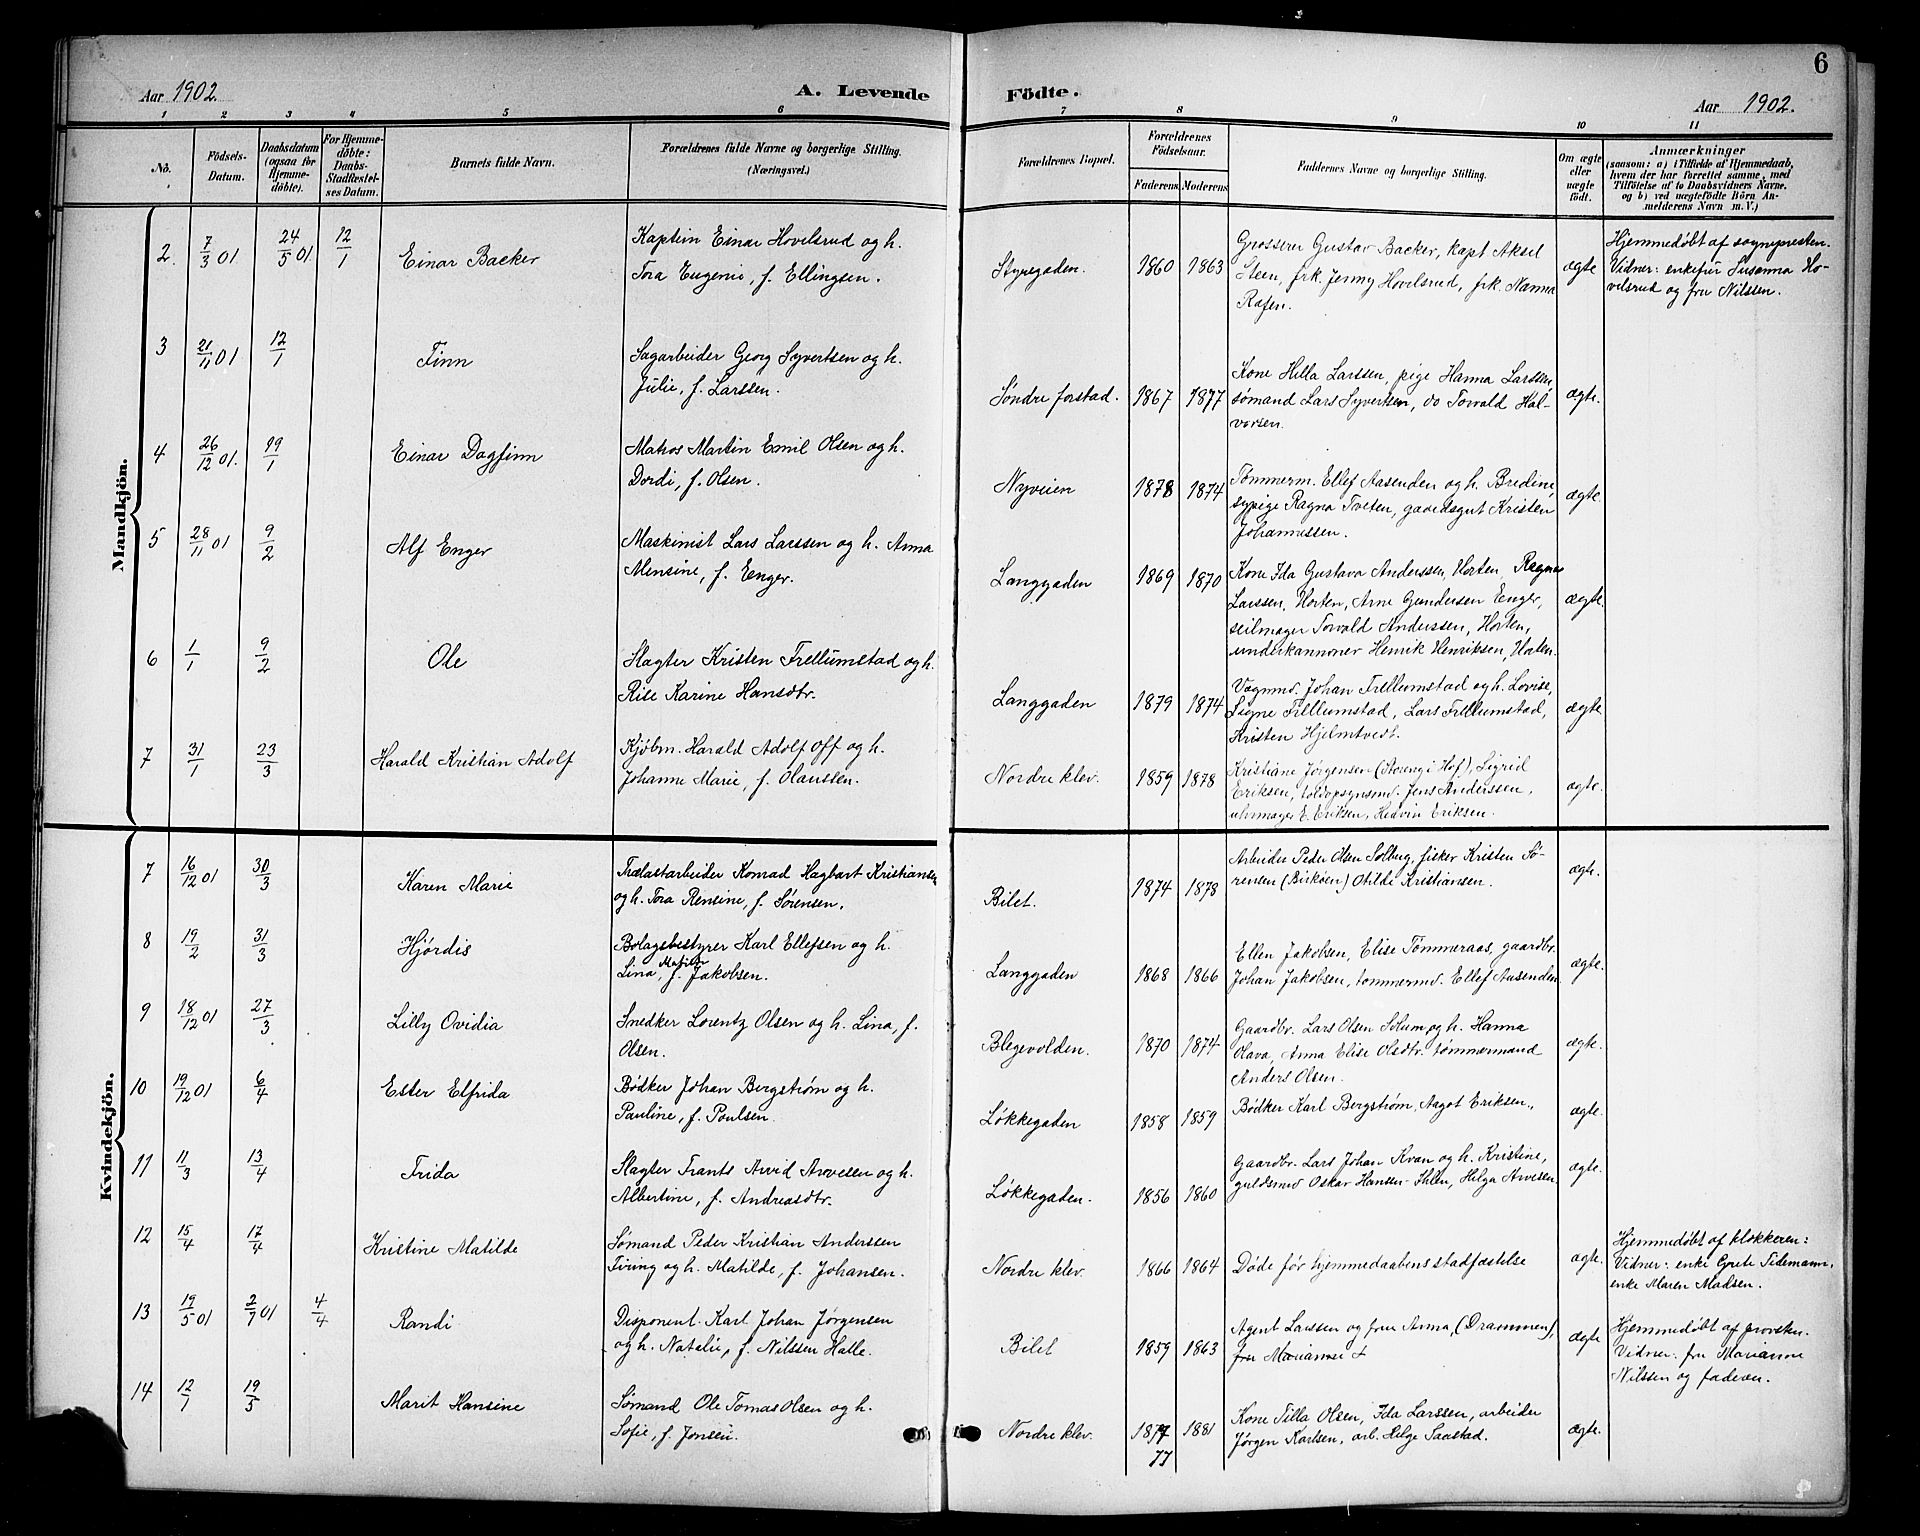 6
Aar 1902.
A. Levende
Födte.
Aar 1902.
1 2 3 4 5 6 7 8 9 10 11
No.
Födsels-
Datum.
Daabsdatum
(ogsaa for
Hjemme-
döbte).
For Hjemme-
döbte:
Daabs-
Stadfæstel-
ses Datum.
Barnets fulde Navn.
Forældrenes fulde Navne og borgerlige Stilling.
(Næringsvei.)
Forældrenes Bopæl.
Forældrenes
Födselsaar.
Faderens
Moderens
Faddernes Navne og borgerlige Stilling.
Om ægte
eller
uægte
födt.
Anmærkninger
(saasom: a) i Tilfælde af Hjemmedaab,
hvem der har forrettet samme, med
Tilföielse af to Daabsvidners Navne.
og b) ved uægtefödte Börn An-
melderens Navn m. V.)
Mandkjön.
2. 7/3 01 24/5 01 12/1 Einar Backer
Kaptein Einar Hovelsrud og h.
Tora Eugenie, f. Ellingsen.
Styregaden. 1860 1863
Grosserer Gustav Backer, kapt Aksel
Steen, frk. Jenny Hovelsrud, frk. Nanna
Rafen.
ægte
Hjemmedøbt af sognepresten.
Vidner: enkefru Susanna Ho-
velsrud og fru Nilssen.
3 21/11 01 12/1 Finn
Sagarbeider Georg Syvertsen og h.
Julie, f. Larssen.
Søndre forstad. 1867 1877
Kone Hella Larssen, pige Hanna Larssen,
sømand Lars Syvertsen, do Torvald Hal-
vorsen.
ægte.
4 26/12 01. 19/1 Einar Dagfinn
Matros Martin Emil Olsen og h.
Dordi, f. Olsen.
Nyveien 1878 1874
Tømmerm. Ellef Aasenden og h. Bredine,
sypige Ragna Tveten, gaardsgut Kristen
Johannessen.
ægte.
5 28/11 01 9/2 Alf Enger
Maskinist Lars Larssen og h. Anna
Mensine, f. Enger.
Langgaden 1869 1870
Kone Ida Gustava Anderssen, Horten, Ragna
Larssen, Horten, Arne Gundersen Enger,
seilmager Torvald Anderssen, Horten,
underkannoner Henrik Henriksen, Horten.
ægte.
6 1/1 9/2 Ole
Slagter Kristen Frellumstad og h.
Rise Karine Hansdtr.
Langgaden 1879 1874
Vognmd. Johan Frellumstad og h. Lovise,
Signe Frellumstad, Lars Frellumstad,
Kristen Hjelmtvedt.
ægte.
7 31/1 23/3 Harald Kristian Adolf
Kjøbm. Harald Adolf Off og h.
Johanne Marie, f. Olaussen.
Nordre klev. 1859 1878
Kristiane Jørgensen (Storeng i Hof), Sigrid
Eriksen, toldopsynsmd. Jens Anderssen,
uhrmager E. Eriksen, Hedvin Eriksen.
ægte.
Kvindekjön.
7 16/12 01 30/3 Karen Marie
Trælastarbeider Konrad Hagbart Kristiansen
og h. Tora Rensine, f. Sørensen.
Bilet. 1874 1878
Arbeider Peder Olsen Solberg, fisker Kristen Sø-
rensen (Birköen) Otilde Kristiansen.
ægte.
8 19/2 31/3 Hjørdis
Bolagsbestyrer Karl Ellefsen og h.
Lina Matilde, f. Jakobsen.
Langgaden 1868 1866
Ellen Jakobsen, Elise Tømmeraas, gaardbr.
Johan Jakobsen, tømmermd. Ellef Aasenden.
ægte.
9 18/12 01 27/3 Lilly Ovidia
Snedker Lorentz Olsen og h. Lina, f.
Olsen.
Blegevolden. 1870 1874
Gaardbr. Lars Olsen Solum og h. Hanna
Olava, Anna Elise Olsdtr. tømmermand
Anders Olsen.
ægte.
10 19/12 01 6/4 Ester Elfrida
Bødker Johan Bergstrøm og h.
Pauline, f. Poulsen.
Løkkegaden 1858 1859
Bødker Karl Bergstrøm, Aagot Eriksen.,
ægte.
11 11/3 13/4 Frida
Slagter Frants Arvid Arvesen og h.
Albertine, f. Andreasdtr.
Løkkegaden. 1856 1860
Gaardbr. Lars Johan Kvan og h. Kristine,
guldsmed Oskar Hansen-Ihlen, Helga Arvesen.
ægte.
12 15/4 17/4 Kristine Matilde
Sømand Peder Kristian Anderssen
Firing og h. Matilde, f. Johansen.
Nordre klev. 1866 1864
Døde før hjemmedaabens stadfæstelse
ægte.
Hjemmedøbt af klokkeren:
Vidner: enke Grete Tidemann,
enke Maren Madsen.
13 19/5 01 2/7 01 4/4 Randi
Disponent Karl Johan Jørgensen
og h. Natalie, f. Nilssen Halle.
Bilet 1859 1863
Agent Larssen og frue Anna, (Drammen),
fru Marianne +
ægte
Hjemmedøbt af provsten.
Vidner: fru Marianne
Nilssen og faderen.
14 12/1 19/5 Marit Hansine
Sømand Ole Tomas Olsen og h.
Sofie, f. Jonsen.
Nordre klev. 1877 1881
77
Kone Tilla Olsen, Ida Larssen, arbeider
Jørgen Karlsen, arb. Helge Saastad.
ægte.